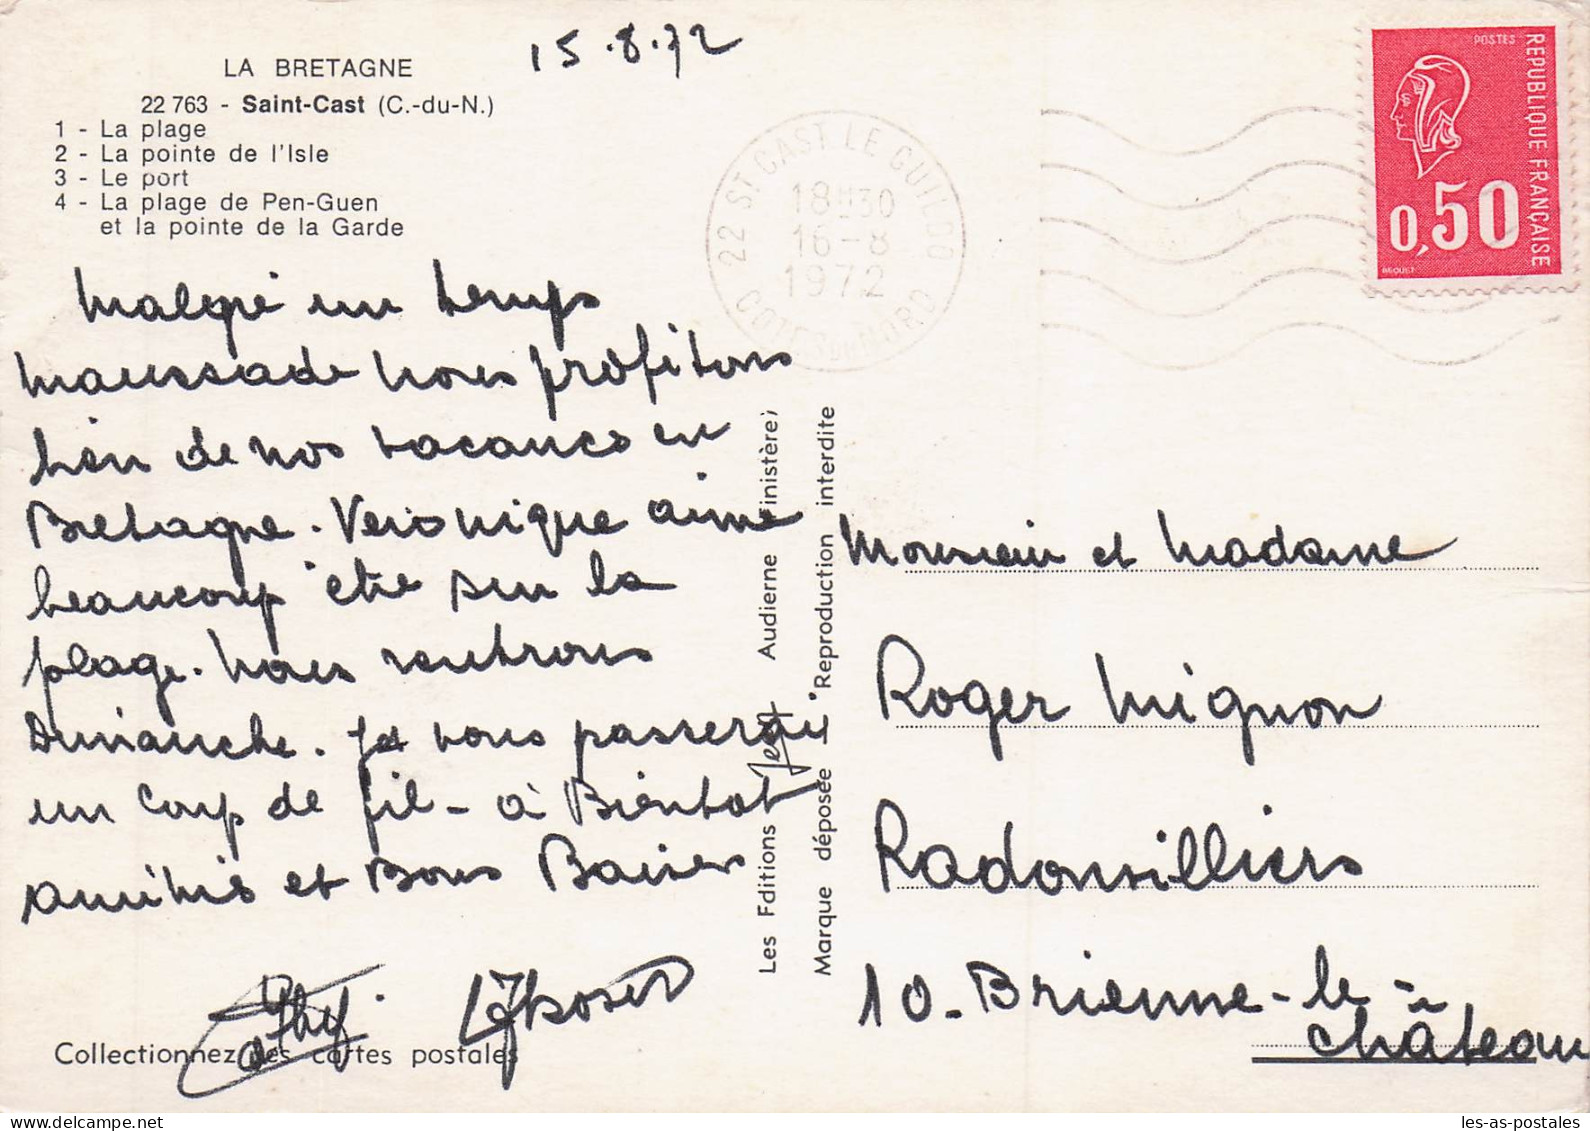 15.8.72
LA BRETAGNE
22 763 - Saint-Cast (C.-du-N.)
1 - La plage
2 - La pointe de l'Isle
3 - Le port
4 - La plage de Pen-Guen
et la pointe de la Garde
22 ST CAST LE GUILDO
18H30
16-8
1972
COTES DU NORD
POSTES
REPUBLIQUE FRANÇAISE
0,50
BEQUET
Malgré un temps
maussade nous profitons
bien de nos vacances en
Bretagne. Veronique aime
beaucoup être sur la
plage. Nous rentrons
Dimanche. Je vous passerai
un coup de fil - à Bientot
amitiés et Bons Baisers
Les Editions Jean Audierne (Finistère)
Marque déposée Reproduction interdite
Monsieur et Madame
Roger Mignon
Radonvilliers
10. Brienne-le-
château
Collectionnez des cartes postales
les-as-postales